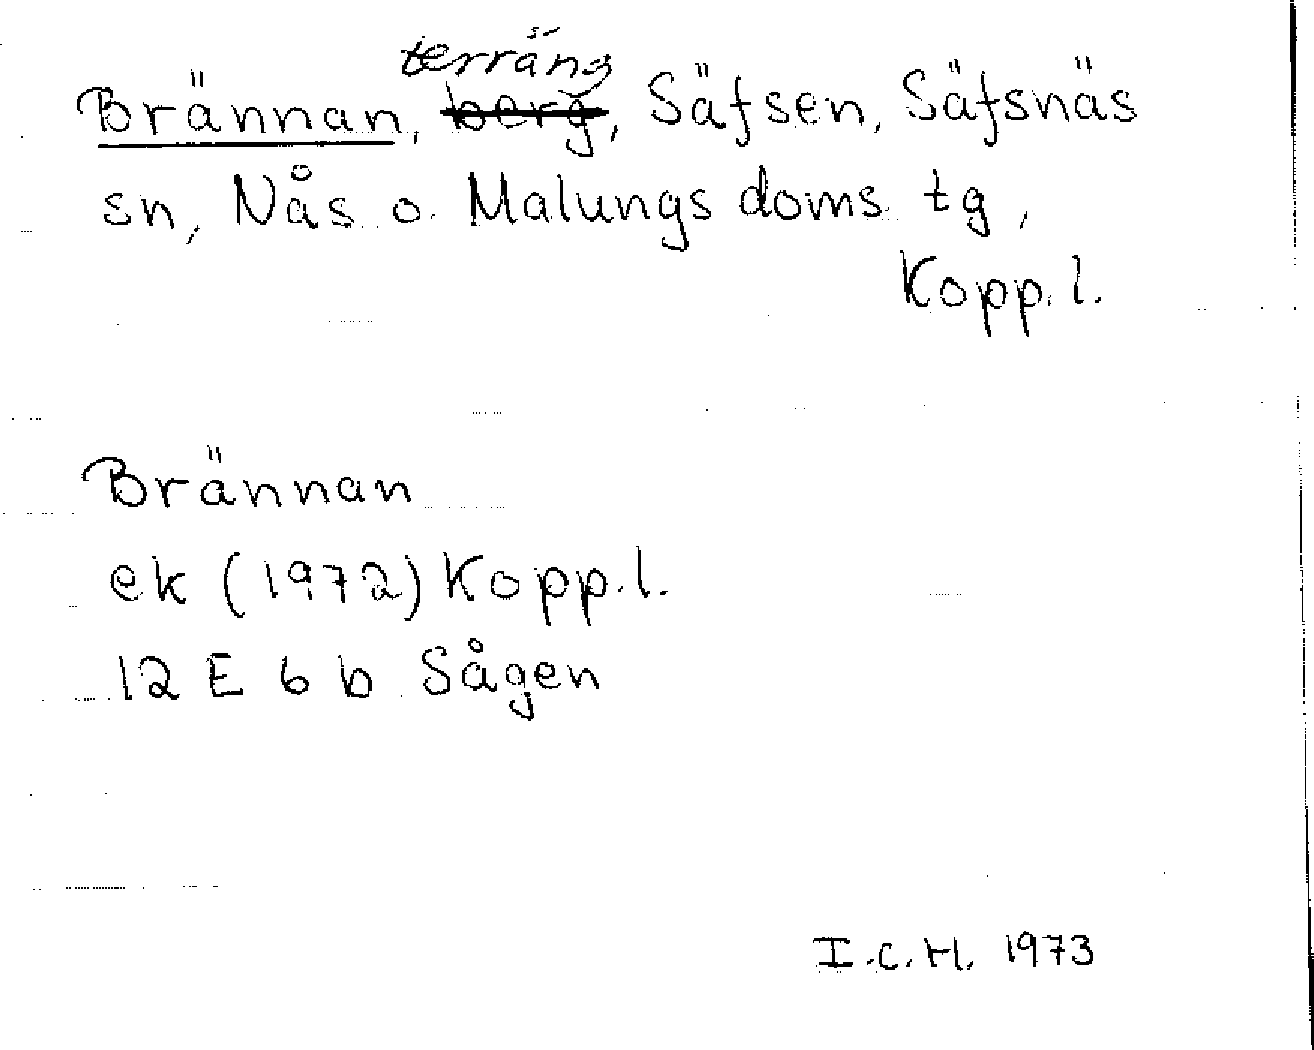 Brännan, terräng berg, Säfsen, Säfsnäs
sn, Nås o. Malungs doms. tg,
Kopp. l.
Brännan
ek (1972) Kopp. l.
12 E 6 b Sågen
I.C.H. 1973